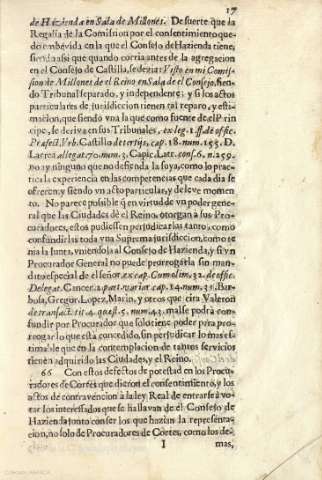 17
de Hazienda en Sala de Millones. De suerte que la
Regalia de la Comission por el consentimiento que-
dò embevida en la que el Consejo de Hazienda tiene,
siendo assi que quando corria antes de la agregacion
en el Consejo de Castilla, se dezia: Visto en mi Comis-
sion de Millones de el Reyno en Sala de el Consejo, sien-
do Tribunal separado, y independente; y si los actos
particulares de jurisdiccion tienen tal reparo, y esti-
macion, que siendo vna la que como fuente de el Prin
cipe, se deriva en sus Tribunales, ex leg. 1. ff. de offic.
Præfect. Vrb. Castillo de tertijs, cap. 18. num. 155. D.
Larrea allegat. 70. num. 3. Capic. Latr. cons. 6. n. 259.
no ay ninguno que no defienda la suya, como lo prac-
tica la experiencia en las competencias que cada dia se
ofrecen; y siendo vn acto particular, y de leve momen
to. No parece possible q̃ en virtud de vn poder gene-
ral que las Ciudades de el Reino, otorgan a sus Pro-
curadores, estos pudiessen perjudicarlas tanto, como
confundirlas toda vna Suprema jurisdiccion, como te
nia la Junta, vniendola al Consejo de Hazienda, y si vn
Procurador General no puede prorrogarla sin man-
dito especial de el señor, ex cap. Cum olim, 32. de offic.
Delegat. Cancer. 2. part. variar. cap. 14. num. 31. Bar-
bosa, Gregor. Lopez, Marin, y otros que cita Valeron
de transact. tit. 4. quæst. 5. num. 43. mal se podrà con-
fundir por Procurador que solo tiene poder para pro-
rrogar lo que està concedido, sin perjudicar lo mas es
timable que en la contemplacion de tantos servicios
tienen adquirido las Ciudades, y el Reino.
66 Con estos defectos de potestad en los Procu-
radores de Cortes que dieron el consentimiento, y los
actos de contravencion à la ley Real de entrarse à vo-
tar los interessados que se hallavan de el Consejo de
Hazienda junto con ser los que hazian la representa-
cion, no solo de Procuradores de Cortes, como los de-
I mas,